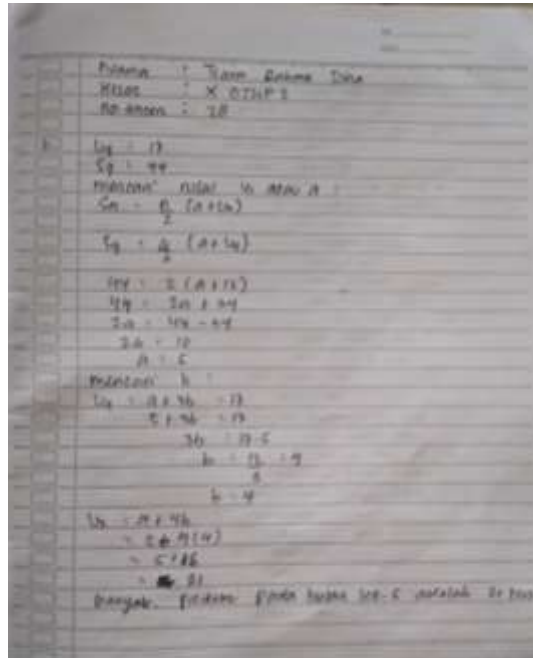 Nama : Rahma Dina
Kelas : X OTKP 2
No absen : 28
1. U4 = 17
S4 = 44
mencari nilai U1 atau a :
Sn = n/2 (a+Un)
S4 = 4/2 (a+U4)
44 = 2 (a+17)
44 = 2a + 34
2a = 44 - 34
2a = 10
a = 5
mencari b :
U4 = a + 3b = 17
5 + 3b = 17
3b = 17-5
b = 12/3 = 4
b = 4
U5 = a + 4b
= 5 + 4(4)
= 5+16
= 21
Banyak pada bulan ke-5 adalah 21